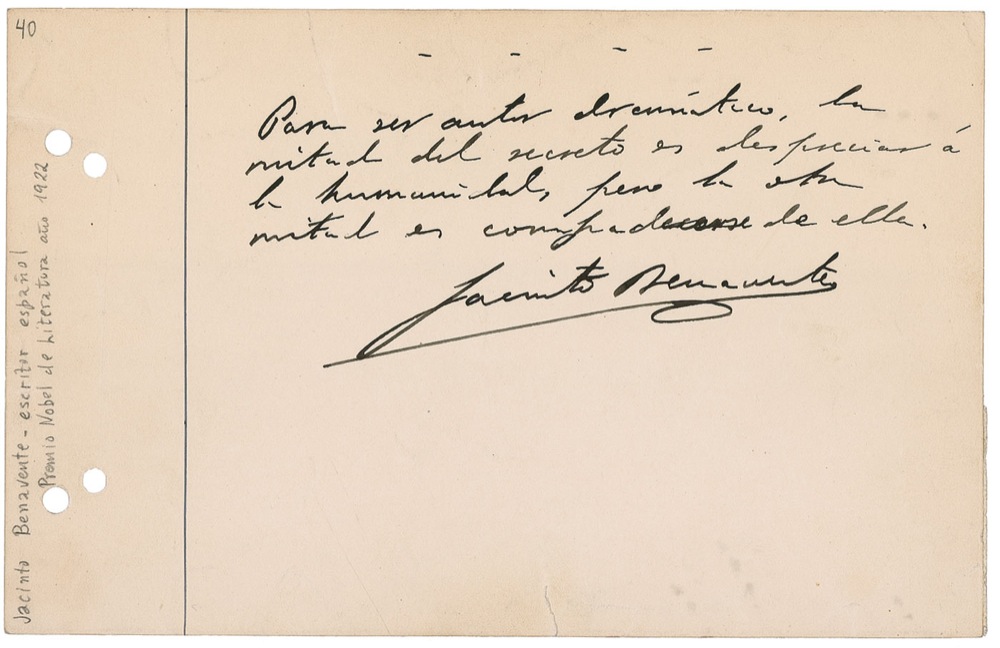 40
Para ser autor dramático, la
mitad del secreto es despreciar á
la humanidad, pero la otra
mitad es compadecerse de ella.
Jacinto Benavente
Jacinto Benavente - escritor español
Premio Nobel de Literatura año 1922